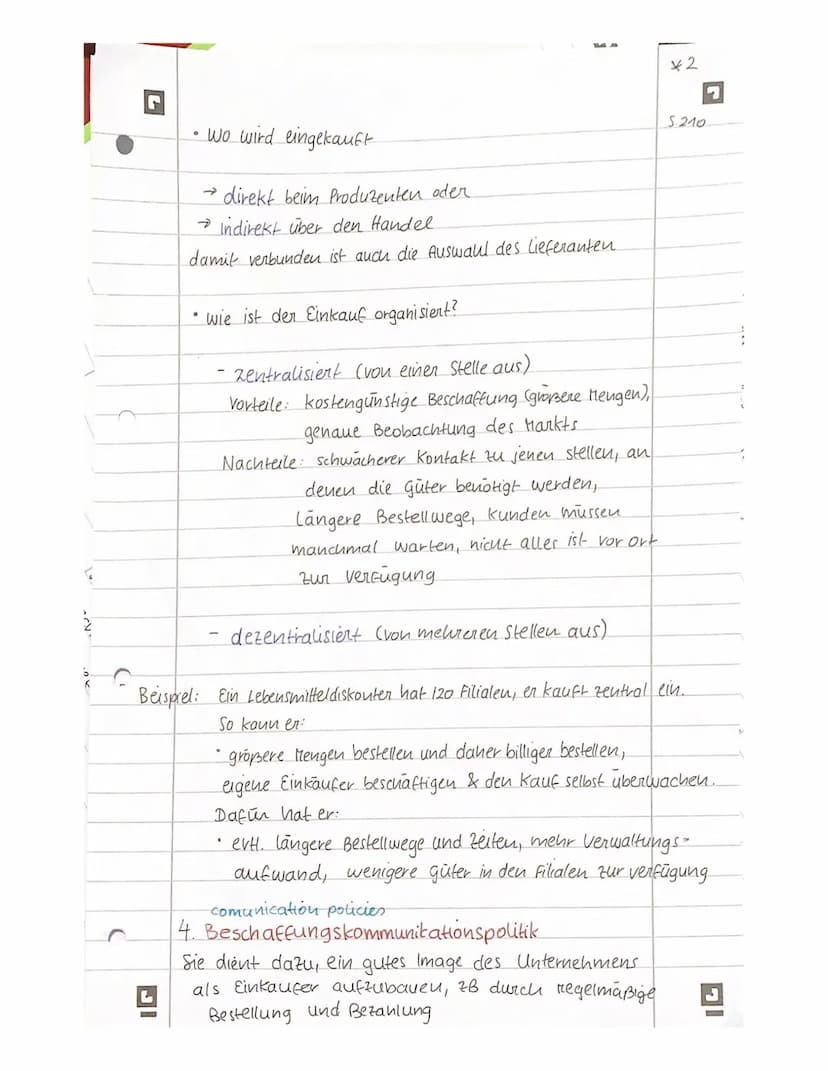 *2
S.210
• Wo wird eingekauft
→ direkt beim Produzenten oder
→ indirekt über den Handel
damit verbunden ist auch die Auswahl des Lieferanten
• wie ist der Einkauf organisiert?
- zentralisiert (von einer Stelle aus)
Vorteile: kostengünstige Beschaffung (größere Mengen),
genaue Beobachtung des Markts
Nachteile: schwächerer Kontakt zu jenen stellen, an
denen die Güter benötigt werden,
längere Bestellwege, kunden müssen
manchmal warten, nicht alles ist vor ort
zur Verfügung
- dezentralisiert (von mehreren Stellen aus)
Beispiel: Ein Lebensmitteldiskonter hat 120 Filialen, er kauft zentral ein.
So kann er:
• größere Mengen bestellen und daher billiger bestellen,
eigene Einkäufer beschäftigen & den Kauf selbst überwachen.
Dafür hat er:
• evtl. längere Bestellwege und Zeiten, mehr Verwaltungs-
aufwand, wenigere güter in den Filialen zur verfügung
comunication policies
4. Beschaffungskommunitationspolitik
Sie dient dazu, ein gutes Image des Unternehmens
als Einkäufer aufzubauen, zB durch regelmäßige
Bestellung und Bezahlung